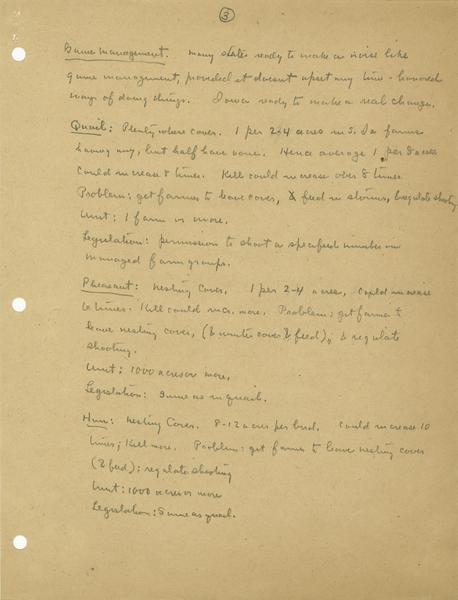 3
Game management. Many states ready to make a noise like
game management, provided it doesnt upset any time-honored
ways of doing things. Iowa ready to make a real change.
Quail: Plenty where cover. 1 per 2-4 acres in S. Ia farms
having any, but half have none. Hence average 1 per 8 acres
Could increase times. Kill could increase over 8 times
Problem: get farmer to leave cover, & feed in storms, & regulate shooting
Unit: 1 farm or more.
Legislation: permission to shoot a specified number on
managed farm groups.
Pheasant: Nesting Cover. 1 per 2-4 acres, could increase
6 times. Kill could incr. more. Problem: get farmer to
leave nesting cover, (& winter cover & feed); & regulate
shooting.
Unit: 1000 acres or more.
Legislation: Same as in quail.
Hun: Nesting Cover. 8-12 acres per bird. Could increase 10
times; Kill more. Problem: get farmer to leave nesting cover
(& feed); regulate shooting
Unit: 1000 acres or more
Legislation: Same as quail.